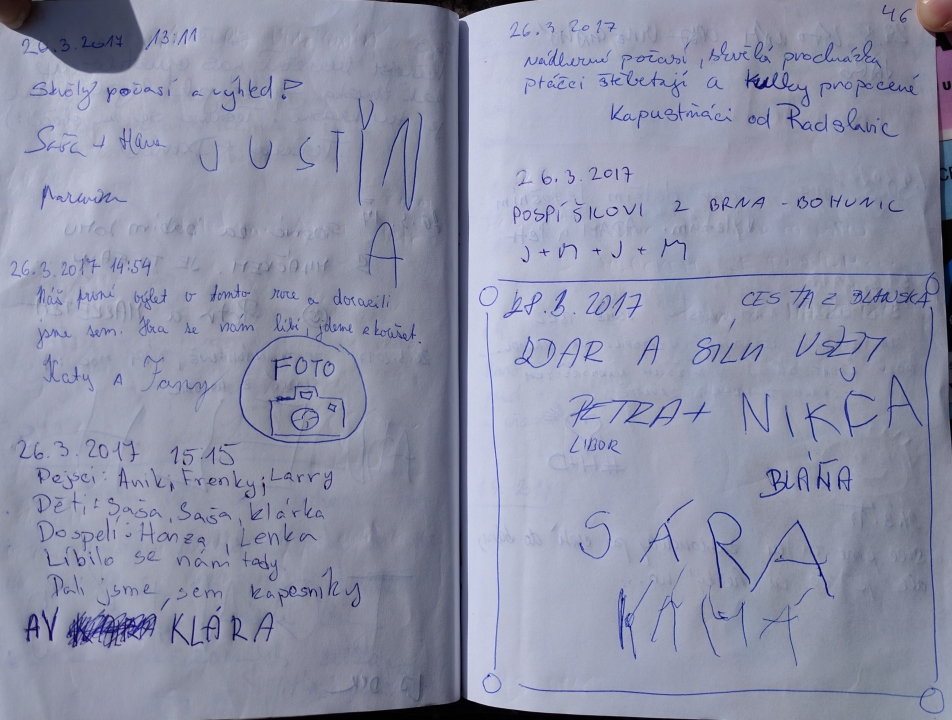 26.3.2017 13:11
Skvělý počasí a výhled!
Saša + Hana
JUSTÝN
A
26.3.2017 14:54
Náš první výlet v tomto roce a dorazili
jsme sem. Moc se nám líbí, jdeme
Katy a Fany
FOTO
26.3.2017 15:15
Pejsci: Anik, Frenky, Larry
Děti: Saša, Saša, klárka
Dospeli: Honza, Lenka
Líbilo se nám tady
Dali jsme sem kapesníky
AV KLÁRA
46
26.3.2017
nádherné počasí, skvělá procházka
ptáčci štebetají a kulky propocené
Kapustňáci od Radslavic
26.3.2017
POSPÍŠILOVI Z BRNA - BOHUNIC
J + M + J + M
28.3.2017 CESTA Z BLANSKA
ZDAR A SÍLU VŠEM
PETRA + NIKČA
LIBOR
BLÁŇA
SÁRA
KÁMA